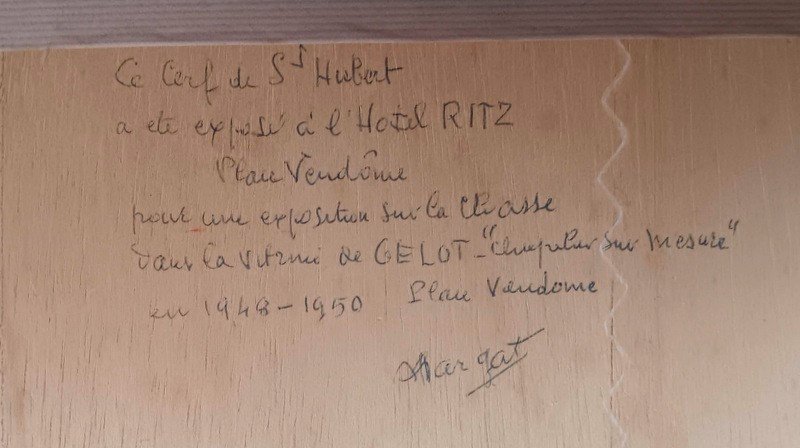 Ce Cerf de St Hubert
a eté exposé à l'Hotel RITZ
Place Vendôme
pour une exposition sur la Chasse
dans la vitrine de GELOT - "Chapelier sur mesure"
en 1948-1950 Place Vendome
Margat